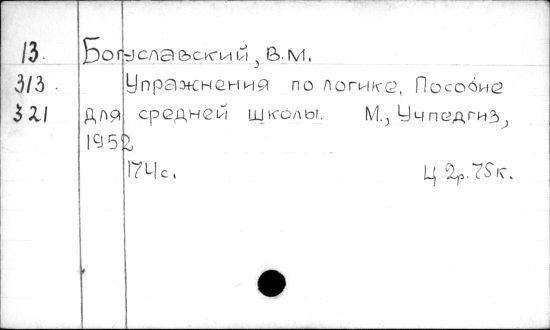 13. Богуславский, В.М.
313. Упражнения по логике. Пособие
321 для средней школы. М., Учпедгиз,
1952
174с. Ц. 2р. 75к.